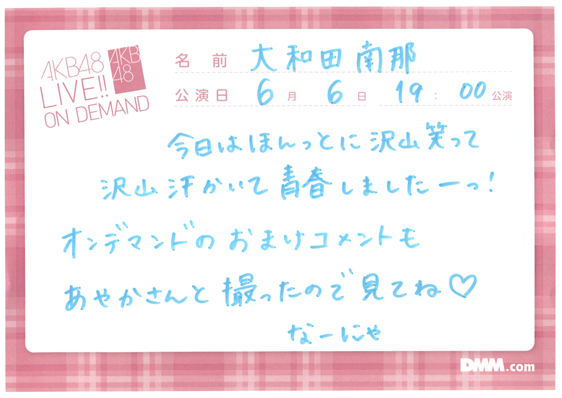 AKB48
LIVE!!
ON DEMAND
AKB
48
名前 大和田南那
公演日 6月 6日 19:00公演
今日はほんっとに沢山笑って
沢山汗かいて青春しましたーっ!
オンデマンドのおまけコメントも
あやかさんと撮ったので見てね♡
なーにゃ
DMM.com